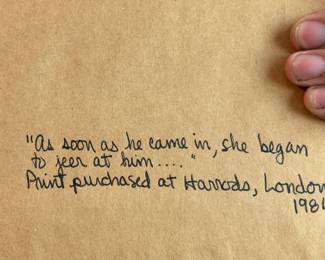 "As soon as he came in, she began
to jeer at him...."
Print purchased at Harrods, London
198